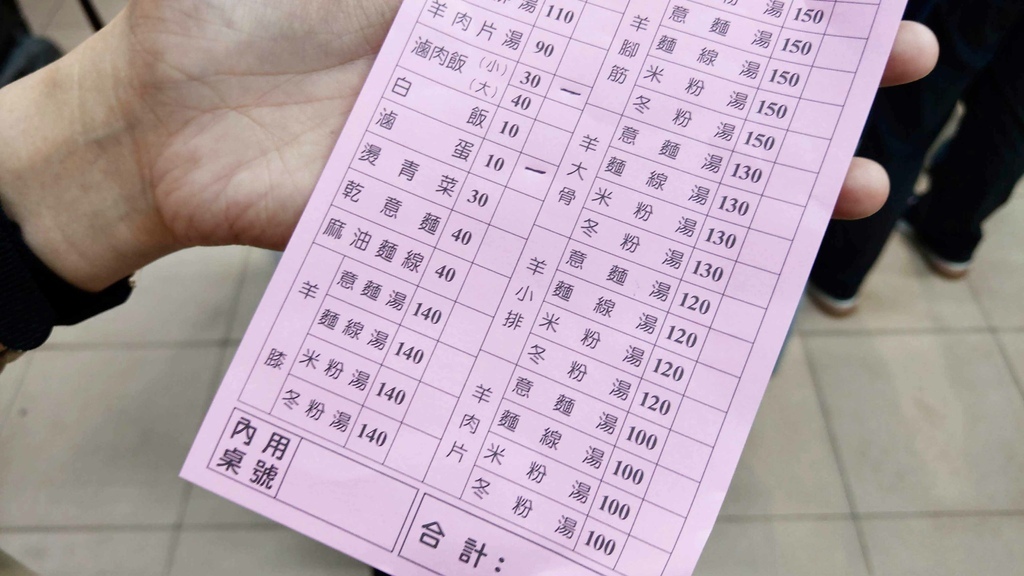 湯 110
羊肉片湯 90
滷肉飯 (小) 30 一
(大) 40
白飯 10
滷蛋 10 一
燙青菜 30
乾意麵 40
麻油麵線 40
羊膝
意麵湯 140
麵線湯 140
米粉湯 140
冬粉湯 140
內用
桌號
粉湯 150
羊腳筋
意麵湯 150
麵線湯 150
米粉湯 150
冬粉湯 150
羊大骨
意麵湯 130
麵線湯 130
米粉湯 130
冬粉湯 130
羊小排
意麵湯 120
麵線湯 120
米粉湯 120
冬粉湯 120
羊肉片
意麵湯 100
麵線湯 100
米粉湯 100
冬粉湯 100
合計：